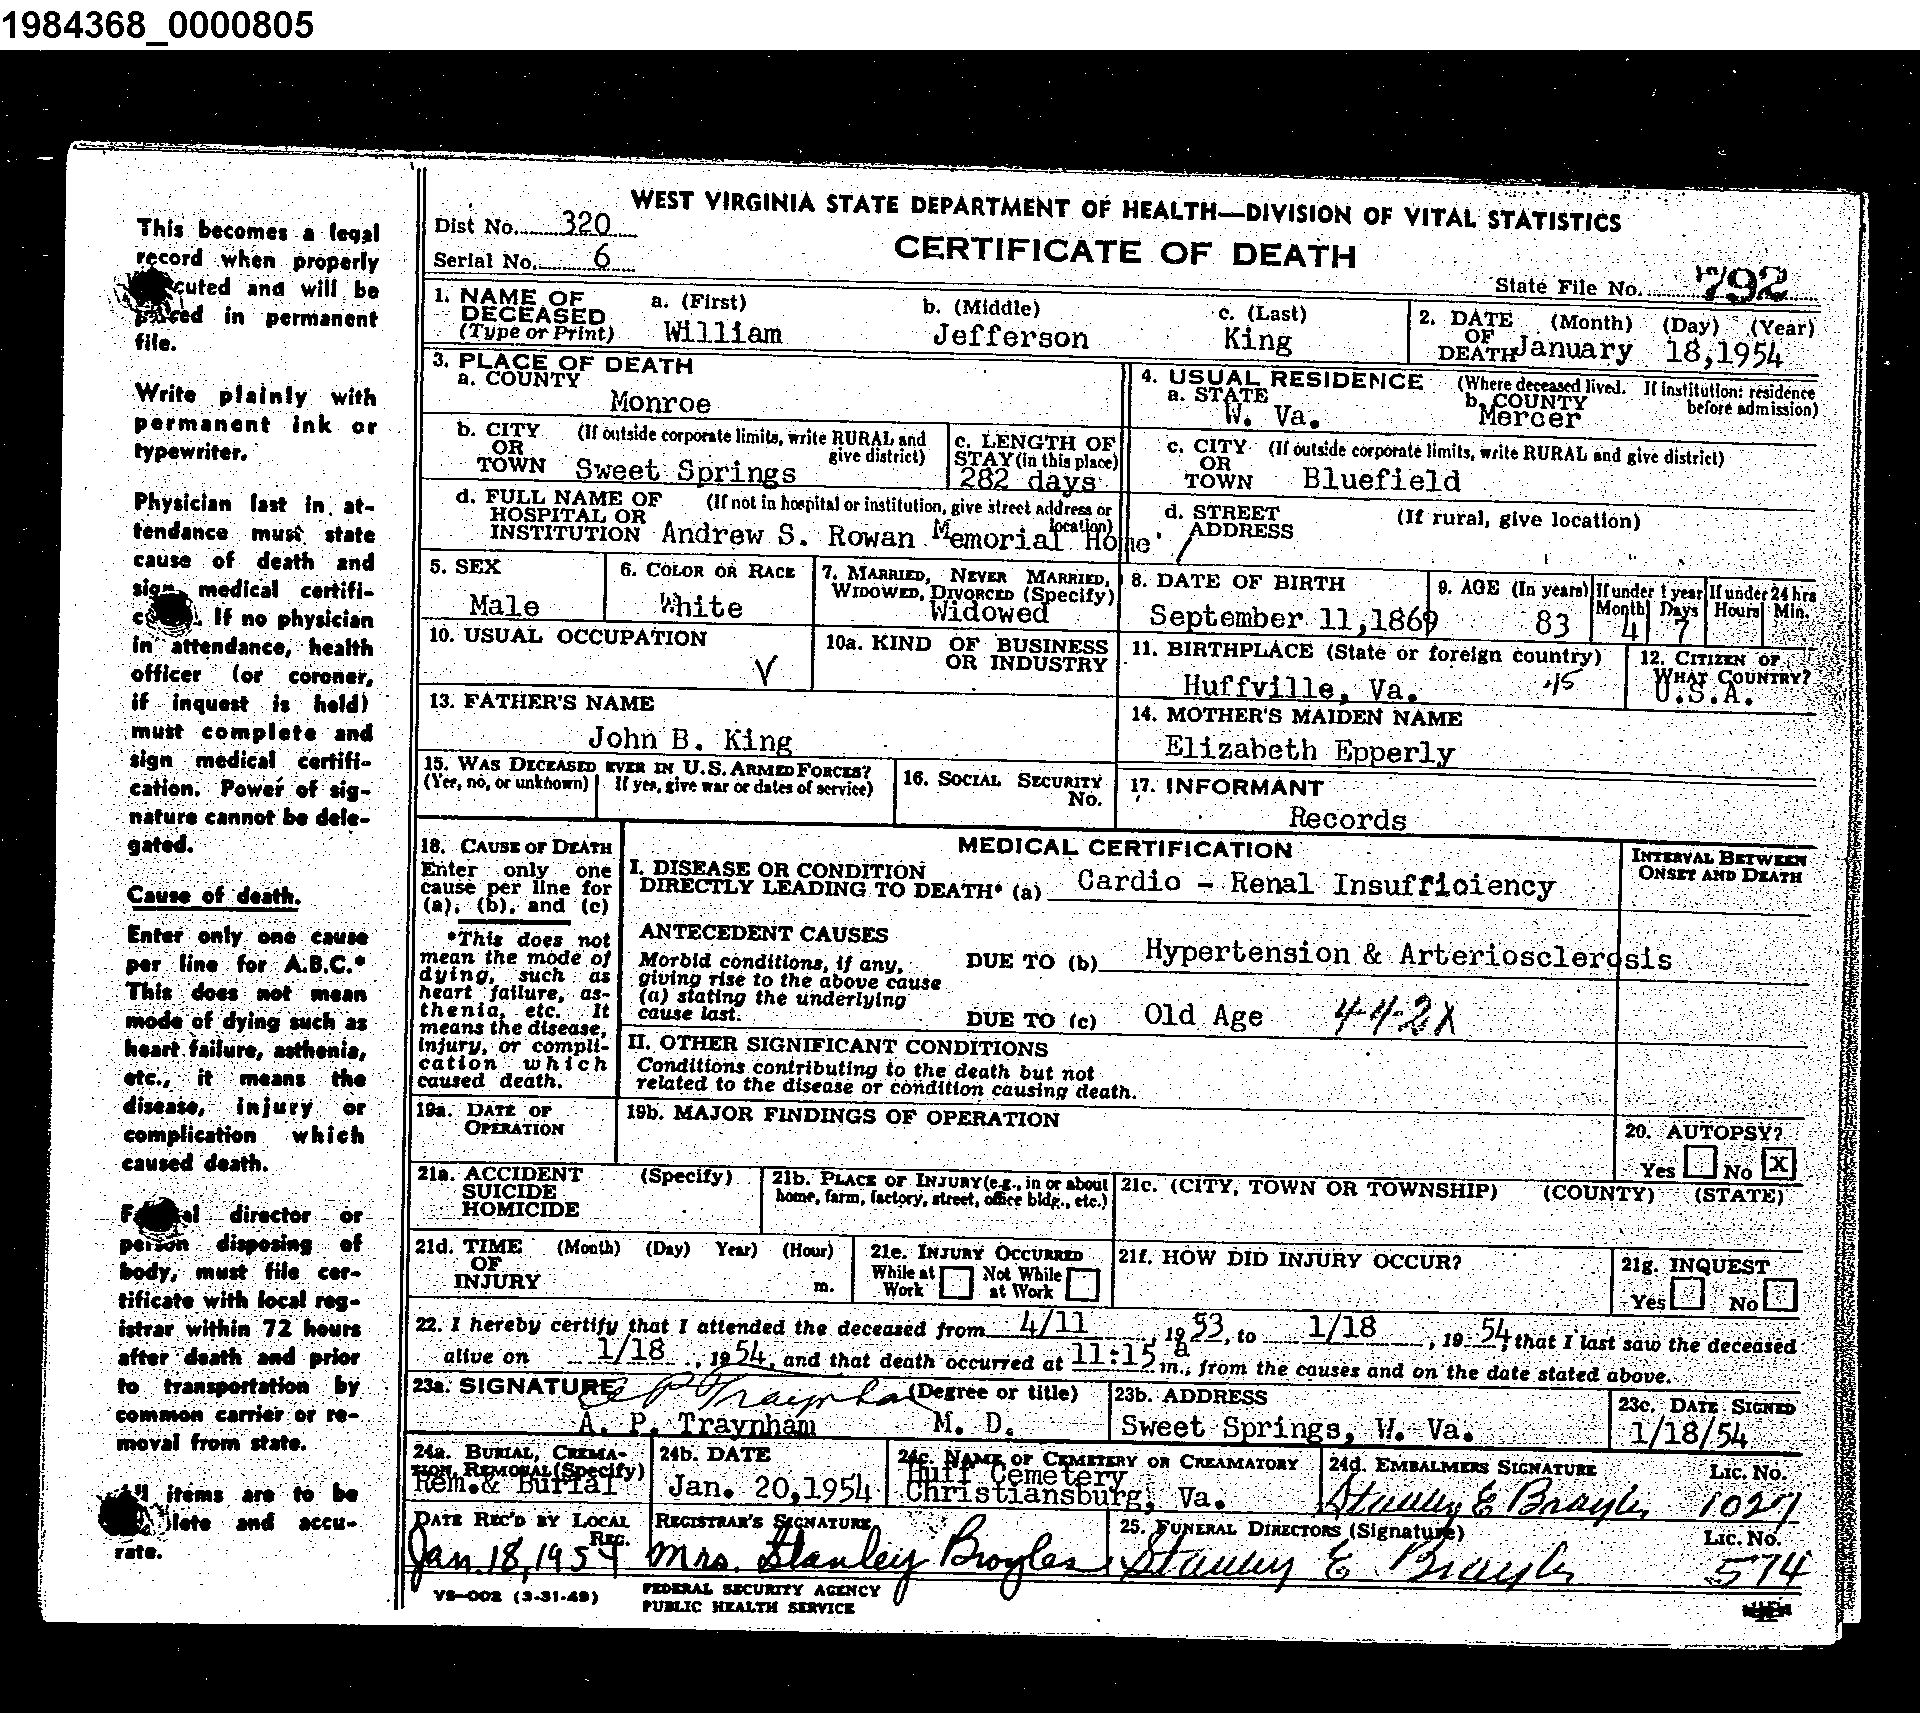 1984368_0000805
This becomes a legal
record when properly
cuted and will be
placed in permanent
file.
Write plainly with
permanent ink or
typewriter.
Physician last in at-
tendance must state
cause of death and
sign medical certifi-
If no physician
in attendance, health
officer (or coroner,
if inquest is held)
must complete and
sign medical certifi-
cation. Power of sig-
nature cannot be dele-
gated.
Cause of death.
Enter only one cause
per line for A.B.C.*
This does not mean
mode of dying such as
heart failure, asthenia,
etc., it means the
disease, injury or
complication which
caused death.
director or
person disposing of
body, must file cer-
tificate with local reg-
istrar within 72 hours
after death and prior
to transportation by
common carrier or re-
moval from state.
items are to be
lete and accu-
rate.
WEST VIRGINIA STATE DEPARTMENT OF HEALTH—DIVISION OF VITAL STATISTICS
Dist No. 320
CERTIFICATE OF DEATH
Serial No. 6
State File No. 792
1. NAME OF DECEASED (Type or Print) a. (First) William b. (Middle) Jefferson c. (Last) King
2. DATE OF DEATH (Month) (Day) (Year) January 18,1954
3. PLACE OF DEATH
a. COUNTY Monroe
b. CITY OR TOWN (If outside corporate limits, write RURAL and give district) Sweet Springs
c. LENGTH OF STAY (in this place) 282 days
d. FULL NAME OF HOSPITAL OR INSTITUTION (If not in hospital or institution, give street address or location) Andrew S. Rowan Memorial Home
4. USUAL RESIDENCE (Where deceased lived. If institution: residence before admission)
a. STATE W. Va. b. COUNTY Mercer
c. CITY OR TOWN (If outside corporate limits, write RURAL and give district) Bluefield
d. STREET ADDRESS (If rural, give location)
5. SEX Male
6. COLOR OR RACE White
7. MARRIED, NEVER MARRIED, WIDOWED, DIVORCED (Specify) Widowed
8. DATE OF BIRTH September 11,1869
9. AGE (In years) 83 If under 1 year Month 4 Days 7 If under 24 hrs Hours Min.
10. USUAL OCCUPATION
10a. KIND OF BUSINESS OR INDUSTRY
11. BIRTHPLACE (State or foreign country) Huffville, Va. 45
12. CITIZEN OF WHAT COUNTRY? U.S.A.
13. FATHER'S NAME John B. King
14. MOTHER'S MAIDEN NAME Elizabeth Epperly
15. WAS DECEASED EVER IN U.S. ARMED FORCES? (Yes, no, or unknown) If yes, give war or dates of service)
16. SOCIAL SECURITY No.
17. INFORMANT Records
18. CAUSE OF DEATH
Enter only one
cause per line for
(a), (b), and (c)
*This does not
mean the mode of
dying, such as
heart failure, as-
thenia, etc. It
means the disease,
injury, or compli-
cation which
caused death.
MEDICAL CERTIFICATION
INTERVAL BETWEEN ONSET AND DEATH
I. DISEASE OR CONDITION
DIRECTLY LEADING TO DEATH* (a) Cardio - Renal Insufficiency
ANTECEDENT CAUSES
Morbid conditions, if any,
giving rise to the above cause
(a) stating the underlying
cause last.
DUE TO (b) Hypertension & Arteriosclerosis
DUE TO (c) Old Age 442X
II. OTHER SIGNIFICANT CONDITIONS
Conditions contributing to the death but not
related to the disease or condition causing death.
19a. DATE OF OPERATION
19b. MAJOR FINDINGS OF OPERATION
20. AUTOPSY? Yes No X
21a. ACCIDENT SUICIDE HOMICIDE (Specify)
21b. PLACE OF INJURY (e.g., in or about home, farm, factory, street, office bldg., etc.)
21c. (CITY, TOWN OR TOWNSHIP) (COUNTY) (STATE)
21d. TIME OF INJURY (Month) (Day) Year) (Hour) m.
21e. INJURY OCCURRED While at Work Not While at Work
21f. HOW DID INJURY OCCUR?
21g. INQUEST Yes No
22. I hereby certify that I attended the deceased from 4/11, 1953, to 1/18, 1954, that I last saw the deceased
alive on 1/18, 1954, and that death occurred at 11:15 a m., from the causes and on the date stated above.
23a. SIGNATURE A P Traynham (Degree or title)
A. P. Traynham M. D.
23b. ADDRESS Sweet Springs, W. Va.
23c. DATE SIGNED 1/18/54
24a. BURIAL, CREMATION REMOVAL (Specify) Rem.& Burial
24b. DATE Jan. 20,1954
24c. NAME OF CEMETERY OR CREAMATORY Huff Cemetery Christiansburg, Va.
24d. EMBALMERS SIGNATURE Stanley E Broyles Lic. No. 1027
DATE REC'D BY LOCAL REG. Jan. 18, 1954
REGISTRAR'S SIGNATURE Mrs. Stanley Broyles
25. FUNERAL DIRECTORS (Signature) Stanley E Broyles Lic. No. 574
VS—002 (3-31-49)
FEDERAL SECURITY AGENCY
PUBLIC HEALTH SERVICE